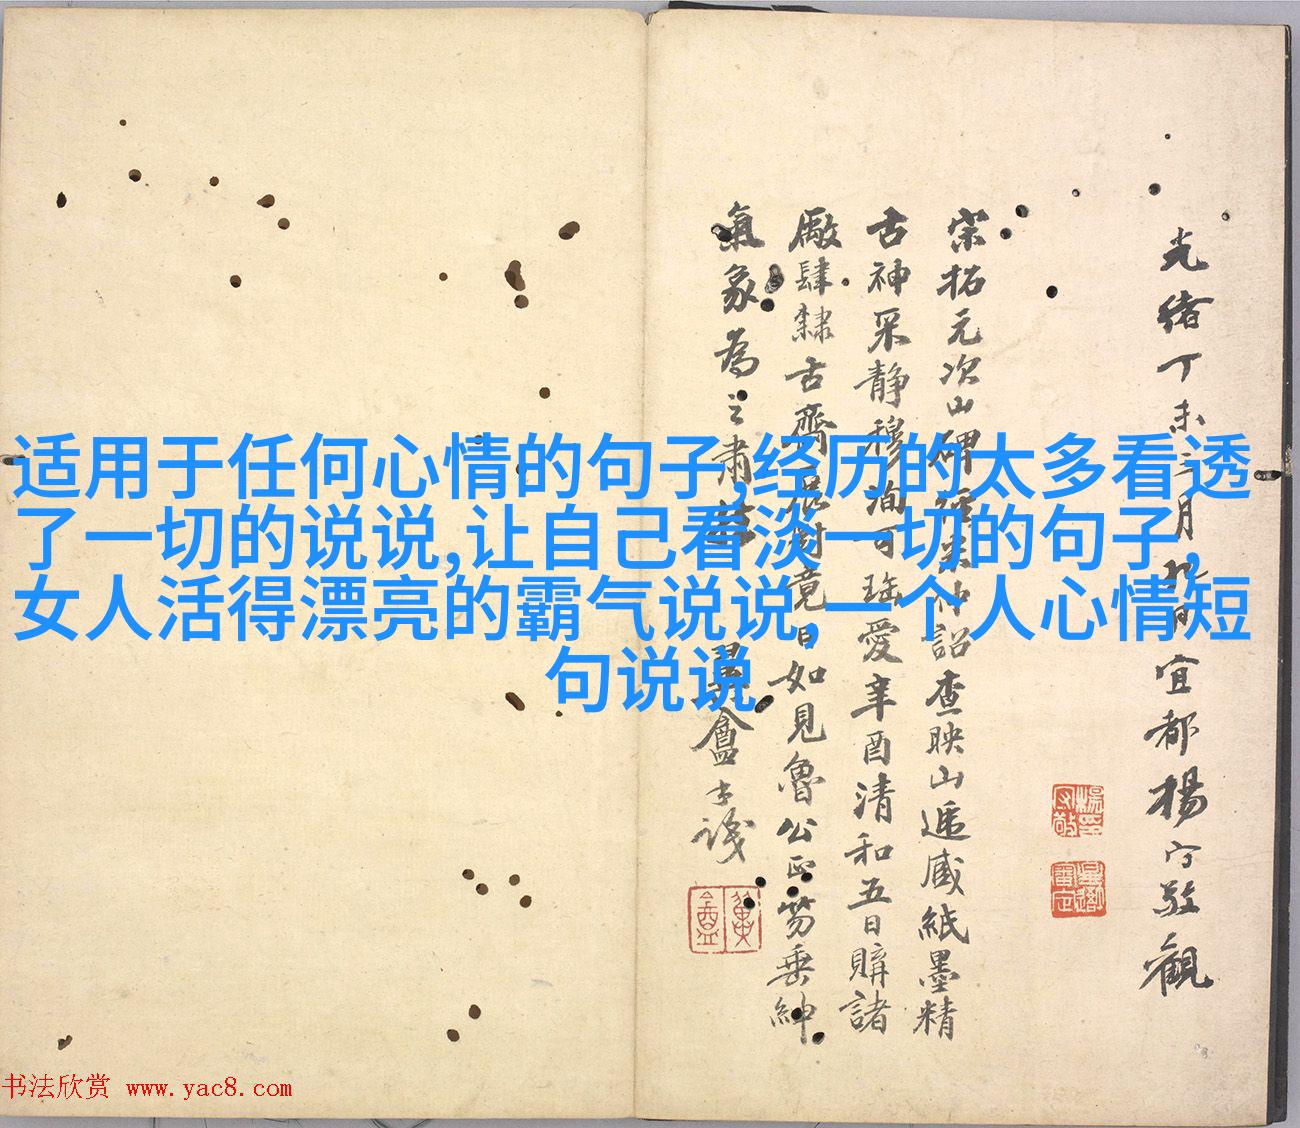 适用于任何心情的句子,经历的太多看透
了一切的说说,让自己看淡一切的句子,
女人活得漂亮的霸气说说,一个人心情短
句说说
光緒丁未三月 宜都楊守敬觀
宋拓元次山碑 査映山遞藏紙墨精
古神采静穆洵可珤愛辛酉清和五日購諸
厰肆隸古齋 竟日如見魯公正笏垂紳
氣象為之肅
翼盦士諓
書法欣赏 www.yac8.com